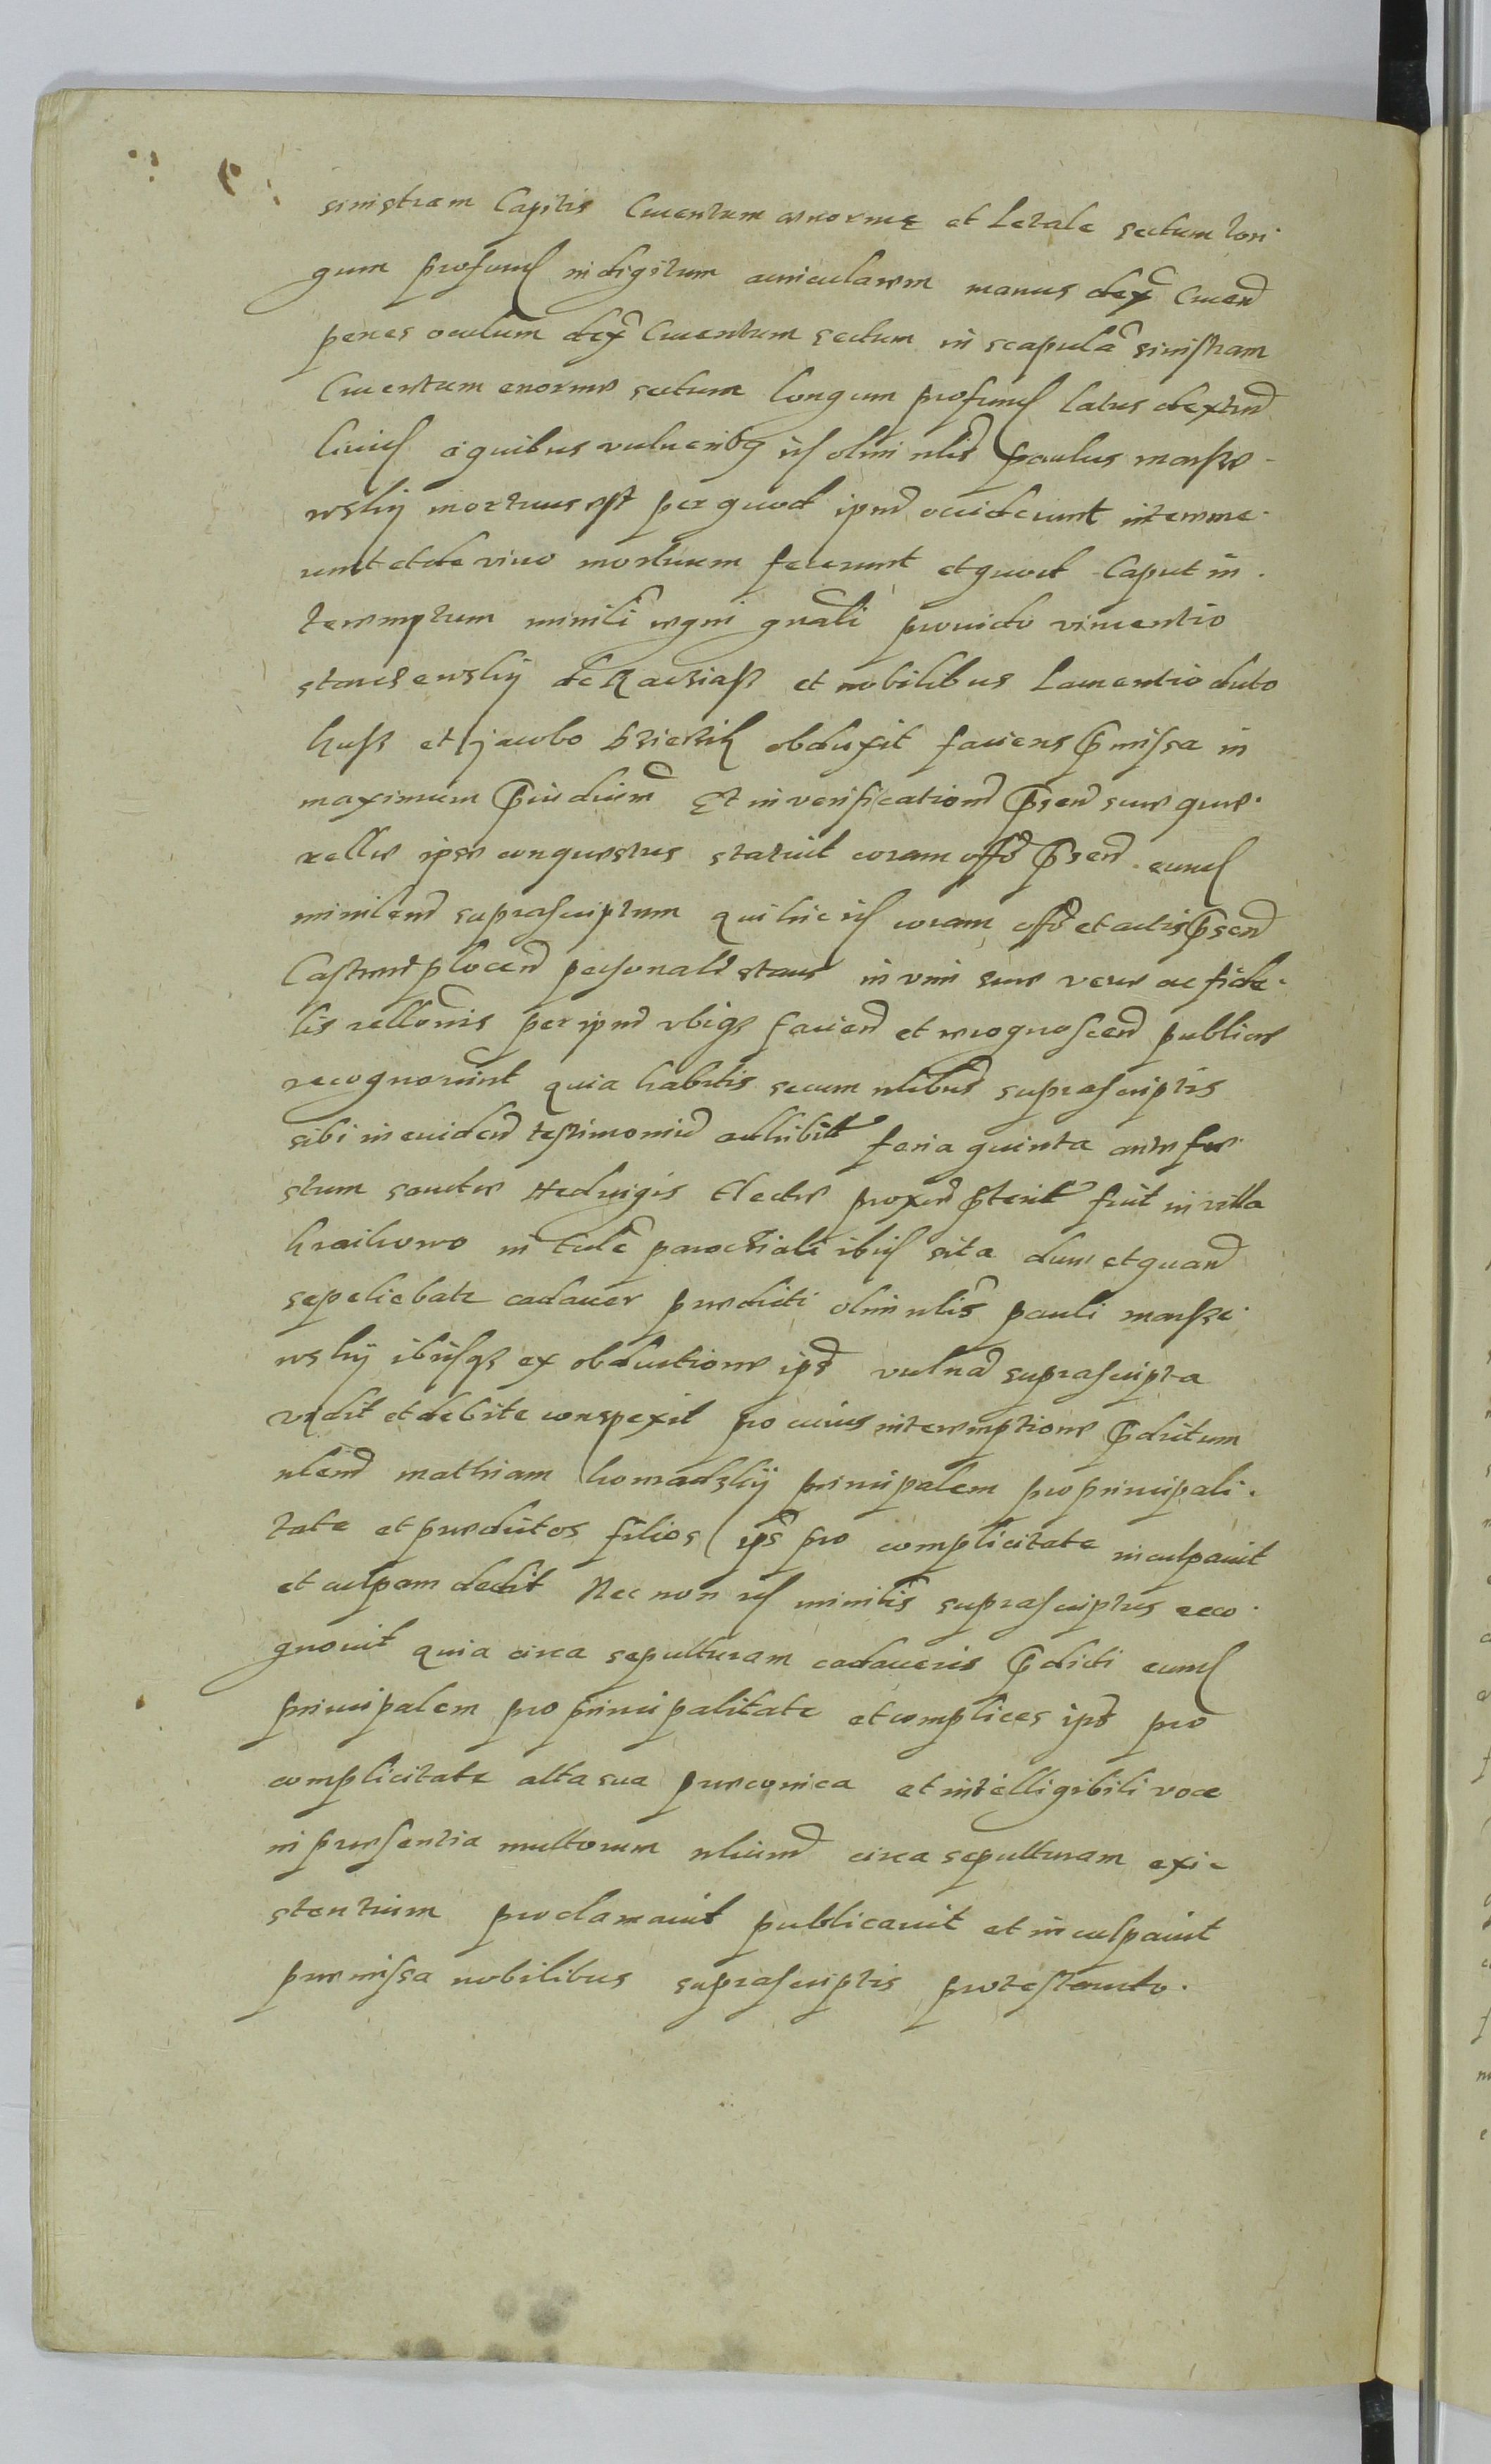 sinistram Capitis Cruentum enorme et Letale sectum lon
gum profund in digitum auricularem manus dex Cruen
penes oculum dex Cruentum sectum in scapula sinistram
Cruentum enorme sectum Longum profund latus dextrum
livid a quibus vulneribus id olim nlis paulus marsze
wskij mortuus est per quod ipm occiderunt intereme
runt et de vivo mortuum fecerunt et quod Caput in
teremptum minili regni gnali provido vincentio
de Raciasz et nobilibus Laurentio
et jacobo obduxit faciens pmissa in
maximum piudium Et in verificationem psen sue que
relle ipse conquestus statuit coram offo psen eund
minilem suprascriptum qui hic id coram offo et actis psen
Castren plocen personalr stans in vim sue vere ac fide
lis rellonis per ipm ubiq facien et recognoscen publice
recognovit quia habitis secum nlibus suprascriptis
sibi in eviden testimoniu adhibit feria quinta ante fe
stum sancte Hedvigis Electe proxme pterit fuit in villa
kraikowo in Ecle parochiali ibid sita dum et quan
sepeliebatr cadaver predicti olim nlis pauli marsze
wskij ibidq ex obductione ips vulna suprascripta
vidit et debite conspexit pro cuius interemptione pdictum
nlem mathiam komadzkij principalem pro principali
tate et predictos filios ips pro complicitate inculpavit
et culpam dedit Nec non id minilis suprascriptus reco
gnovit quia circa sepulturam cadaveris pdicti eund
principalem pro principalitate et complices ips pro
complicitate alta sua preconica et intelligibili voce
in presentia multorum nlium circa sepulturam exi
stentium proclamavit publicavit et inculpavit
premissa nobilibus suprascriptis protestando.